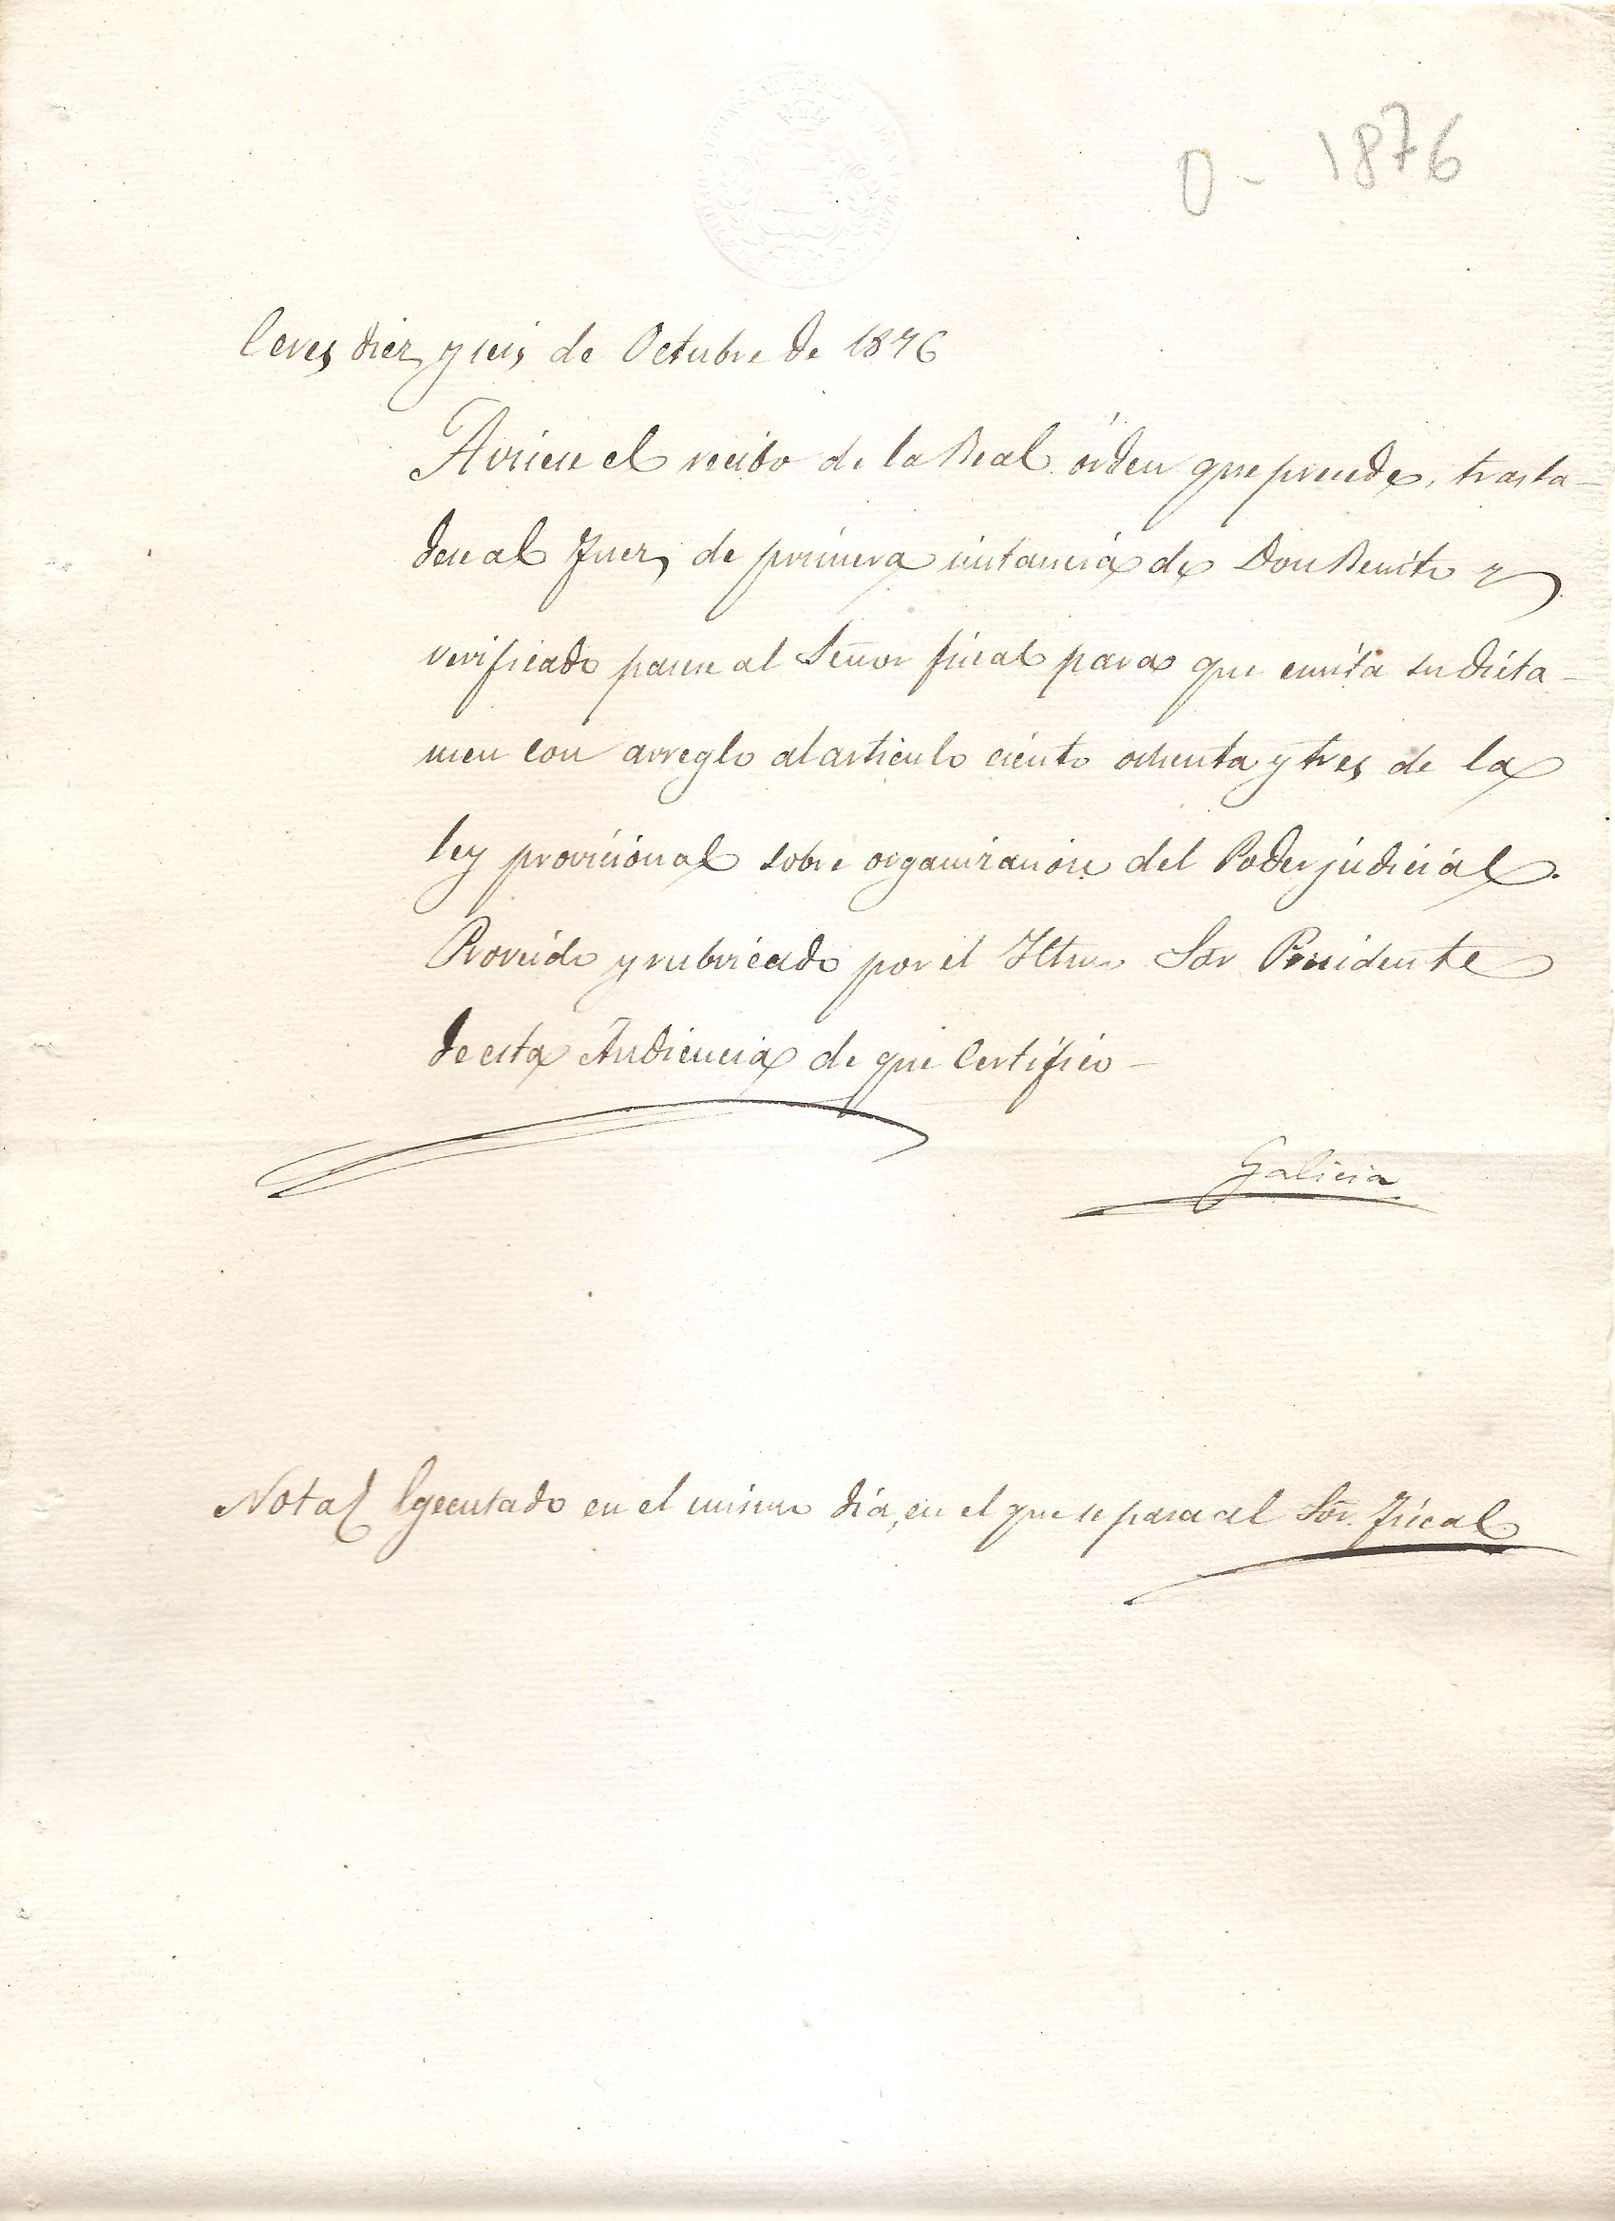 0 - 1876
Ceres diez y seis de Octubre de 1876
Avisese el recibo de la Real órden que precede, trasla-
dese al Juez de primera instancia de Don Benito y
verificado pasese al Señor fiscal para que emita su dicta-
men con arreglo al articulo ciento ochenta y tres de la
ley provisional sobre organizacion del Poder judicial.
Proveido y rubricado por el Iltmo Sor Presidente
de esta Audiencia de que Certifico-
Galicia
Nota Egecutado en el mismo dia, en el que se pasa al Sor. Fiscal